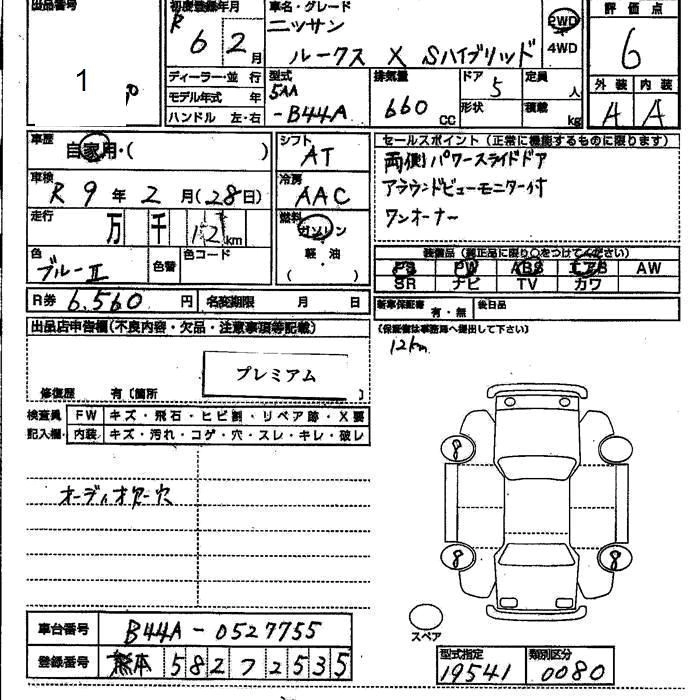 出品番号 1
初度登録年月 R 6 2月
車名・グレード
ニッサン
ルークス X Sハイブリッド
2WD
4WD
評価点
6
外装 内装
A A
ディーラー・並行
モデル年式 年
ハンドル 左・右
型式
5AA
-B44A
排気量
660 CC
ドア 5
形状
定員 人
積載 kg
車歴
自家用・( )
シフト
AT
セールスポイント(正常に機能するものに限ります)
両側パワースライドドア
アラウンドビューモニター付
ワンオーナー
車検
R 9年 2月(28日)
冷房
AAC
走行
万 千 12 km
燃料
ガソリン
・
軽・油
( )
色
ブルーII
色替
色コード
装備品(純正品に限り○をつけてください)
PS PW ABS エアB AW
SR ナビ TV カワ
R券 6,560 円
名変期限 月 日
新車保証書 有・無
後日品
(保証書は事務局へ提出して下さい)
12km
出品店申告欄(不良内容・欠品・注意事項等記載)
プレミアム
修復歴 有〔箇所 〕
検査員
記入欄
FW キズ・飛石・ヒビ割・リペア跡・X要
内装 キズ・汚れ・コゲ・穴・スレ・キレ・破レ
オーディオレス穴
8
8
8
スペア
車台番号 B44A-0527755
登録番号 熊本 582 72535
型式指定
19541
類別区分
0080